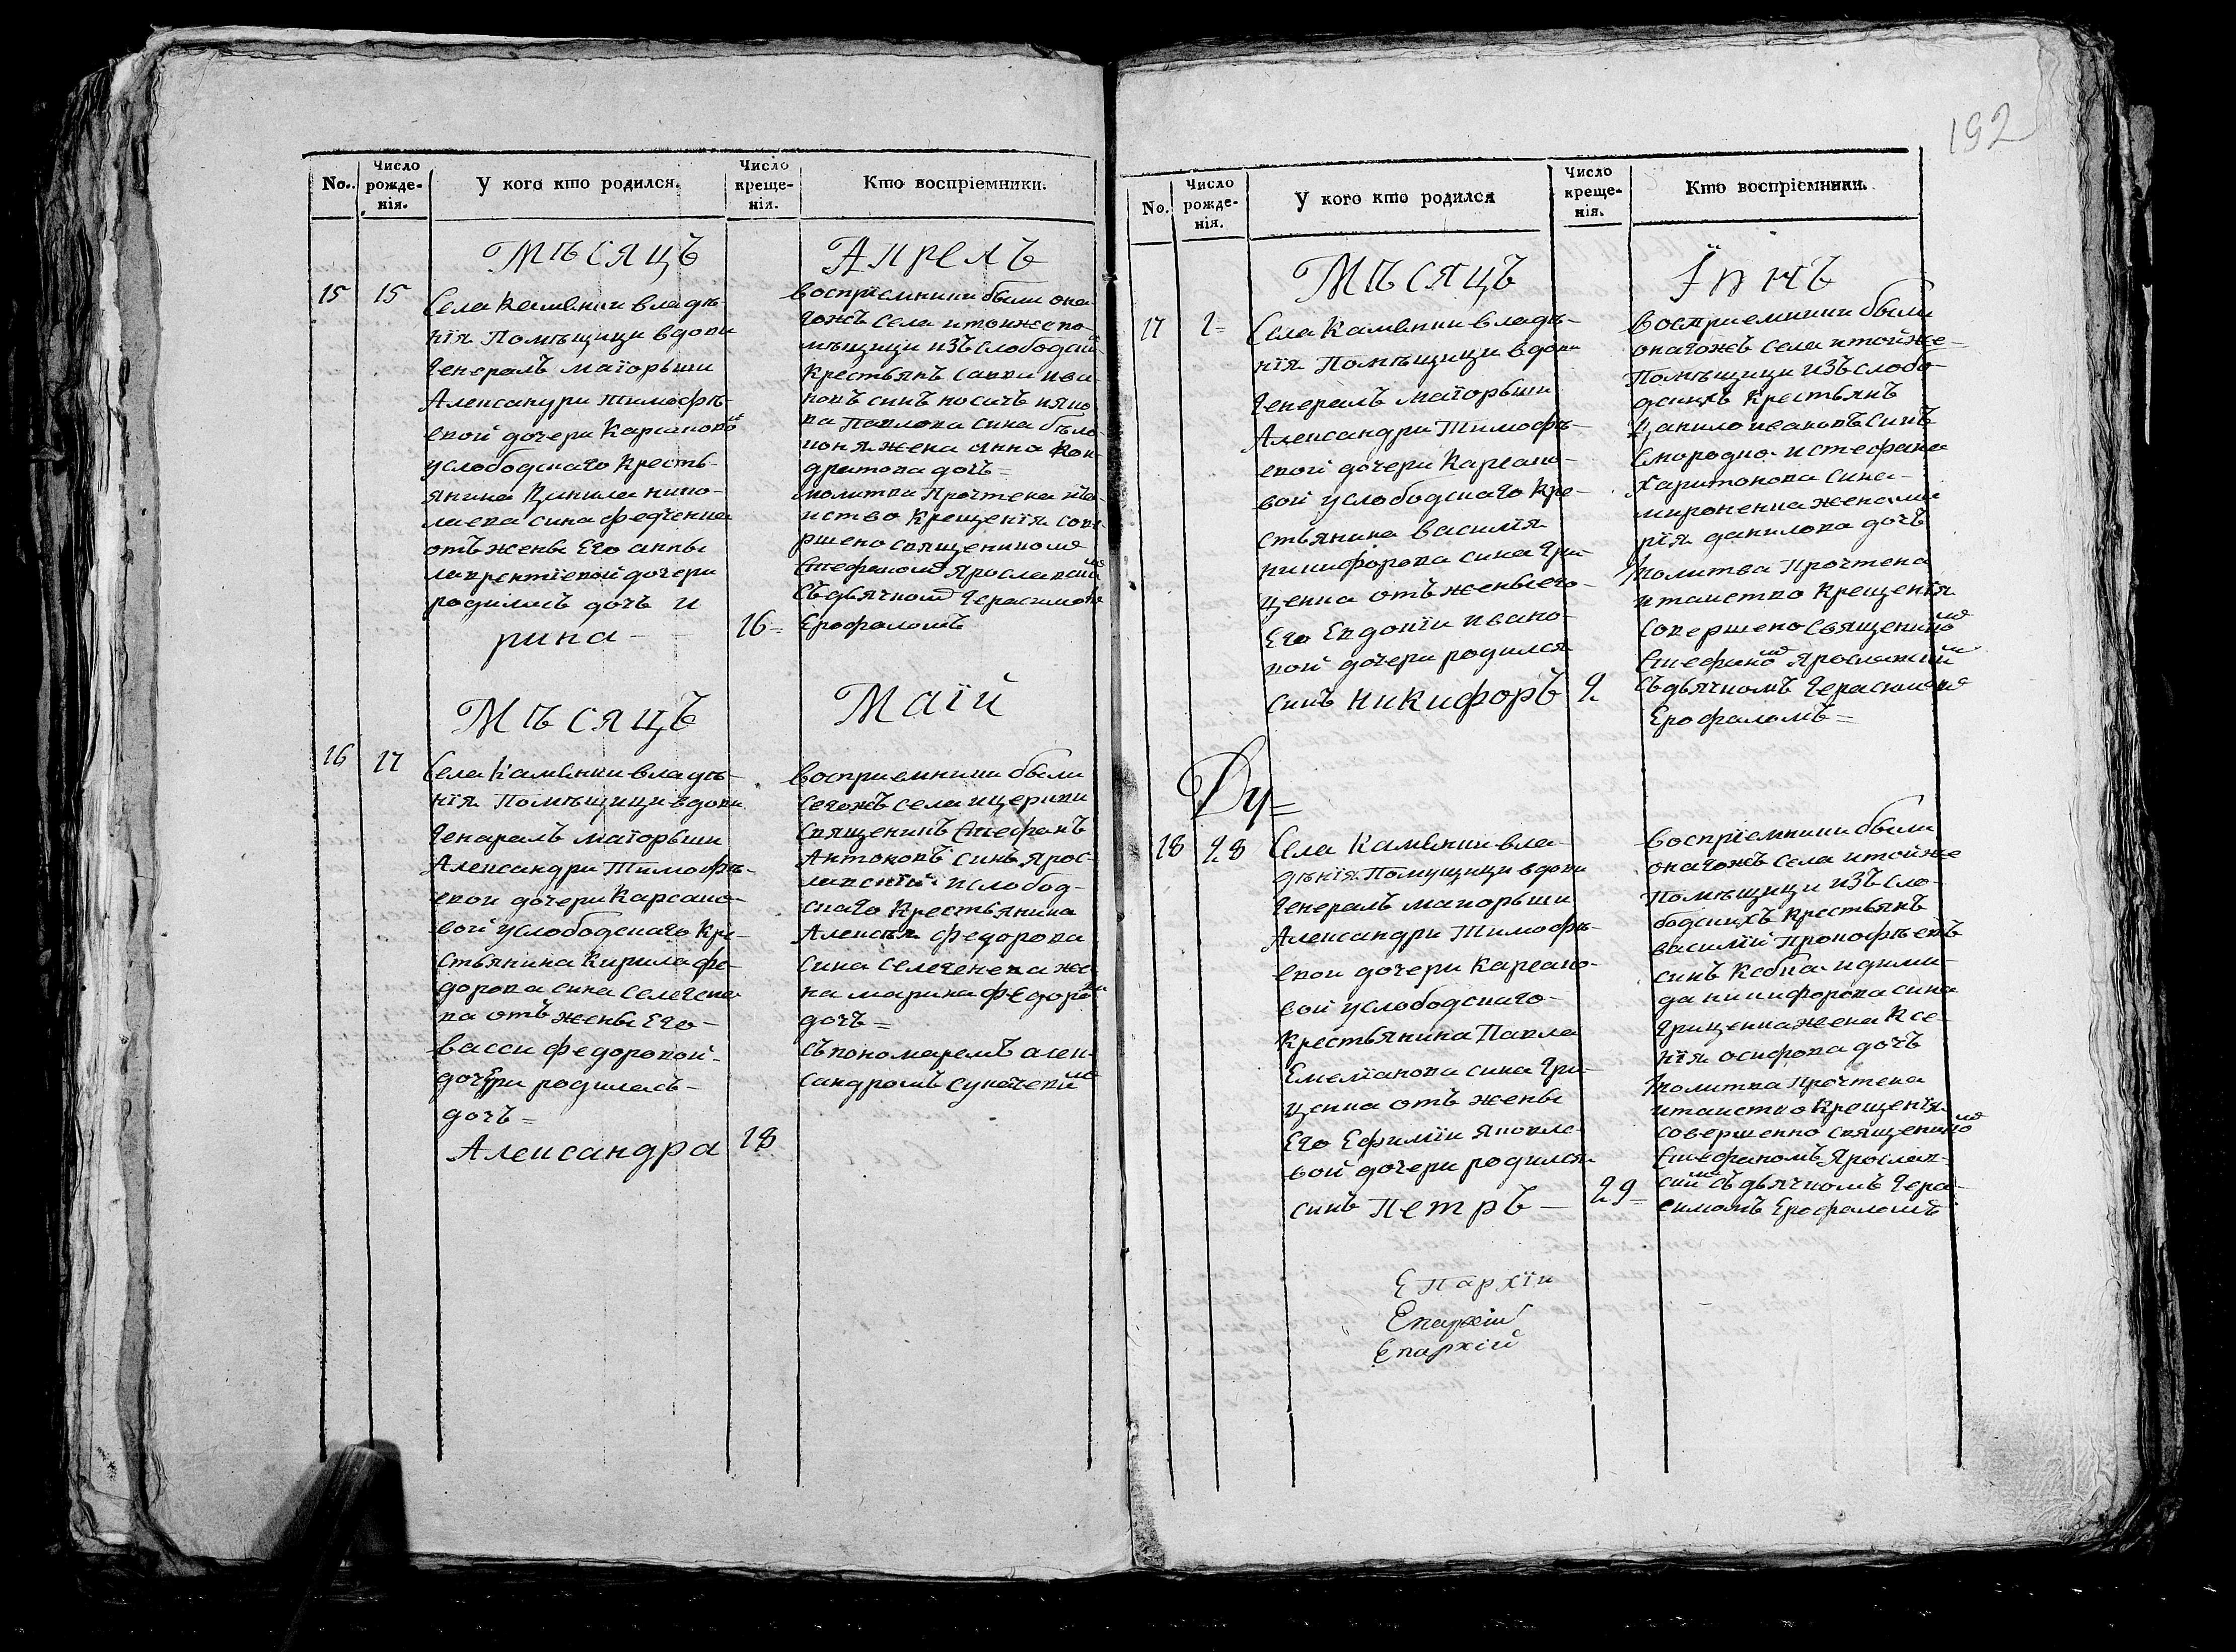 192
No. Число рожде-нія. У кого кто родился. Число креще-нія. Кто воспріемники.
Мѣсяцъ Апрелъ
15 15
Села Каменки владѣ-
нїя Помѣщици вдови
Генералъ маїорьши
Александри Тимофѣ-
евой дочери Карсановой
услободскаго кресть-
янина Данила нико-
лаева сина Федченка
отъ жены Его анны
лаврентїевой дочери
родилась дочъ И
рина -
16 =
воспрїемники были она-
гожъ села итоиже по-
мѣщици изъ слободских
Крестьянъ савки ива-
новъ синъ носачъ
ва Павлова сина
жена Анна Кон-
дратова дочъ =
молитва Прочтена ита-
иство Крещенїя сове-
ршено священикомъ
Стефаномъ Ярославским
Съдьячкомъ Герасимомъ
Ерофаломъ
Мѣсяцъ Маїй
16 17
Села Каменки владѣ-
нїя Помѣщици вдови
Генаралъ маїорьши
Александри Тимофѣ-
евои дочери Карсано-
вой услободскаго Кре-
стьянина Кирила фе-
дорова сина Селегене-
ва отъ жены Его -
васси федоровой -
дочери родилась -
дочъ =
Александра
18
восприемники были
сегожъ села ицеркви
священикъ Стефанъ
Антоновъ синъ Ярос-
лавскїй ислобод-
скаго Крестьянина
Алексѣя Федорова
сина селегенева же-
на марина Федорова
дочъ =
съ пономаремъ алек-
сандромъ
No. Число рожде-нія. У кого кто родился Число креще-нія. Кто воспріемники.
Мѣсяцъ Їюнъ
17 1 =
Села Каменки владѣ-
нїя Помѣщици вдови
Генералъ маїорьши
Александри Тимофѣ-
евои дочери Карсано-
вой услободскаго Кре-
стьянина василїя
никифорова сина Гри-
ценка отъ жены его -
Его Евдокїи ивано-
вой дочери родился
синъ Никифоръ
2
восприемники были
онагожъ села итойже -
Помѣщици изъ слобо-
дскихъ Крестьянъ
Данило ивановъ синъ
Смородко и стефана
Харитонова сина -
мироненка жена ма-
рїя данилова дочъ
молитва Прочтена
итаиство Крещенїя
совершено священикомъ
Стефаномъ Ярославским
Съдьячкомъ Герасимомъ
Ерофаломъ =
Ду =
18 28
Села Каменки вла-
дѣнїя Помущици вдови
Генералъ маиорьши
Александри Тимофѣ-
евои дочери Карсано-
вой услободскаго -
Крестьянина Павла
Емелїанова сина Гри-
ценка отъ жены
Его Ефимїи яковле-
вой дочери родился
синъ Петръ -
29 =
воспрїемники были
онагожъ села итойже
Помѣщици изъ сло-
бодскихъ Крестьянъ
василїй Прокофѣевъ
синъ Кобца идими-
да никифорова сина
Гриценка жена Ксе-
нїя осифова дочъ
молитва Прочтена
итаиство Крещенїя
совершенно священикомъ
Стефаномъ Ярослав-
ским съдьячкомъ Гера-
симомъ Ерофаломъ
Епархїи
Епархїй
Епархїй